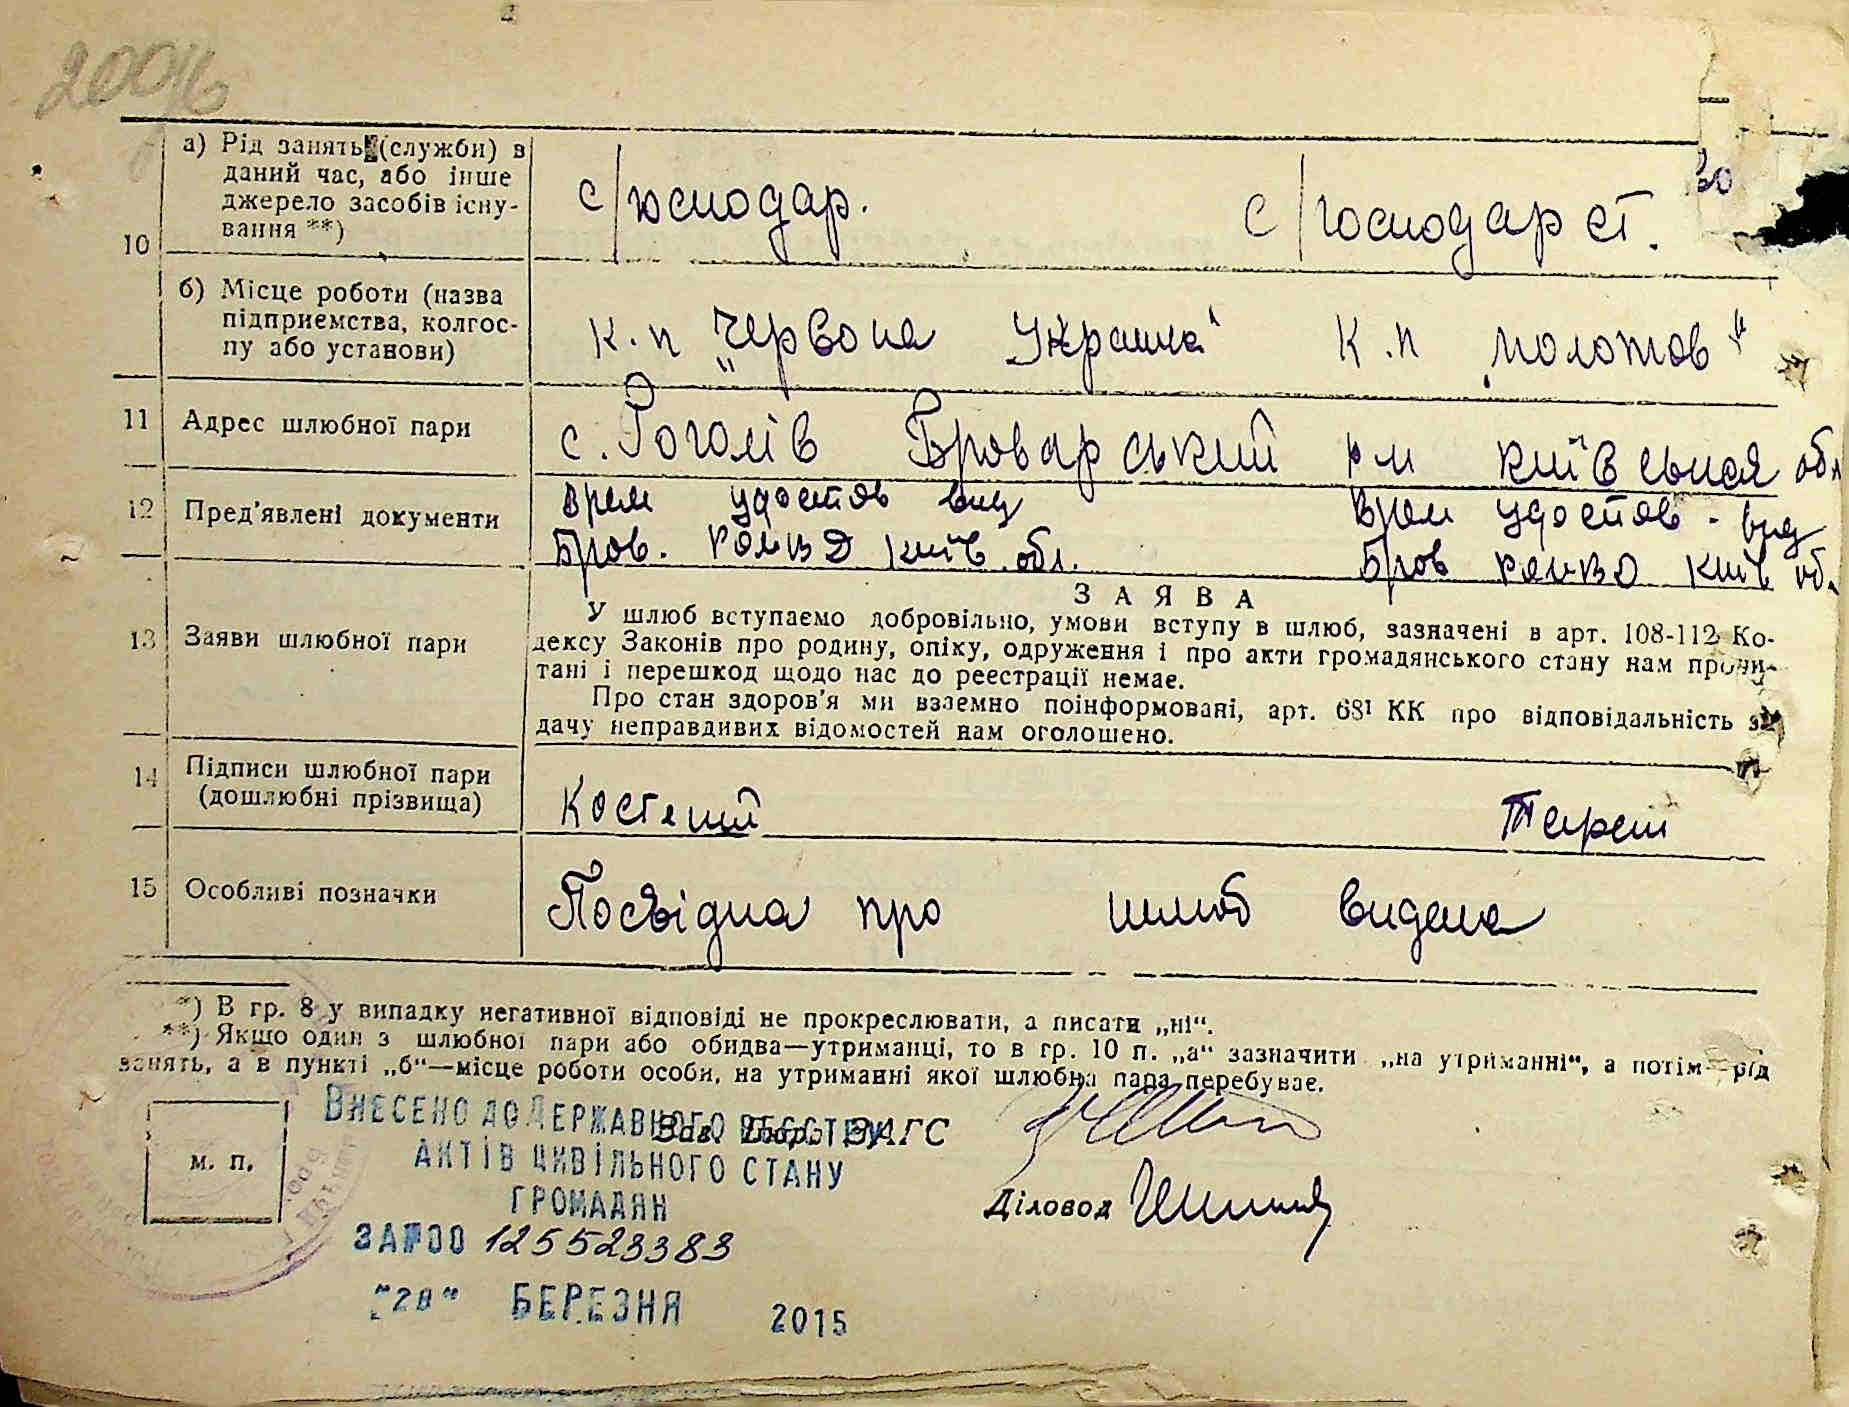 200
10
а) Рід занять (служби) в
даний час, або інше
джерело засобів існу-
вання **)
с/господар.
с/господарст.
30
б) Місце роботи (назва
підприємства, колгос-
пу або установи)
к.п „Червона Україна“
к.п „Молотов“
11
Адрес шлюбної пари
с. Гоголів Броварський р-н Київськая обл
12
Пред'явлені документи
врем удостов вид
Бров. РОМВД Київ. обл.
врем удостов - вид
Бров РОМВД Київ об.
13
Заяви шлюбної пари
ЗАЯВА
У шлюб вступаємо добровільно, умови вступу в шлюб, зазначені в арт. 108-112 Ко-
дексу Законів про родину, опіку, одруження і про акти громадянського стану нам прочи-
тані і перешкод щодо нас до реєстрації немає.
Про стан здоров'я ми взаємно поінформовані, арт. 68¹ КК про відповідальність за
дачу неправдивих відомостей нам оголошено.
14
Підписи шлюбної пари
(дошлюбні прізвища)
15
Особливі позначки
Посвідка про шлюб видана
*) В гр. 8 у випадку негативної відповіді не прокреслювати, а писати „ні“.
**) Якщо один з шлюбної пари або обидва—утриманці, то в гр. 10 п. „а“ зазначити „на утриманні“, а потім—рід
занять, а в пункті „б“—місце роботи особи, на утриманні якої шлюбна пара перебуває.
м. п.
Зав. Бюро ЗАГС
Діловод
ВНЕСЕНО ДО ДЕРЖАВНОГО РЕЄСТРУ
АКТІВ ЦИВІЛЬНОГО СТАНУ
ГРОМАДЯН
ЗА №00 125523383
"28" БЕРЕЗНЯ 2015